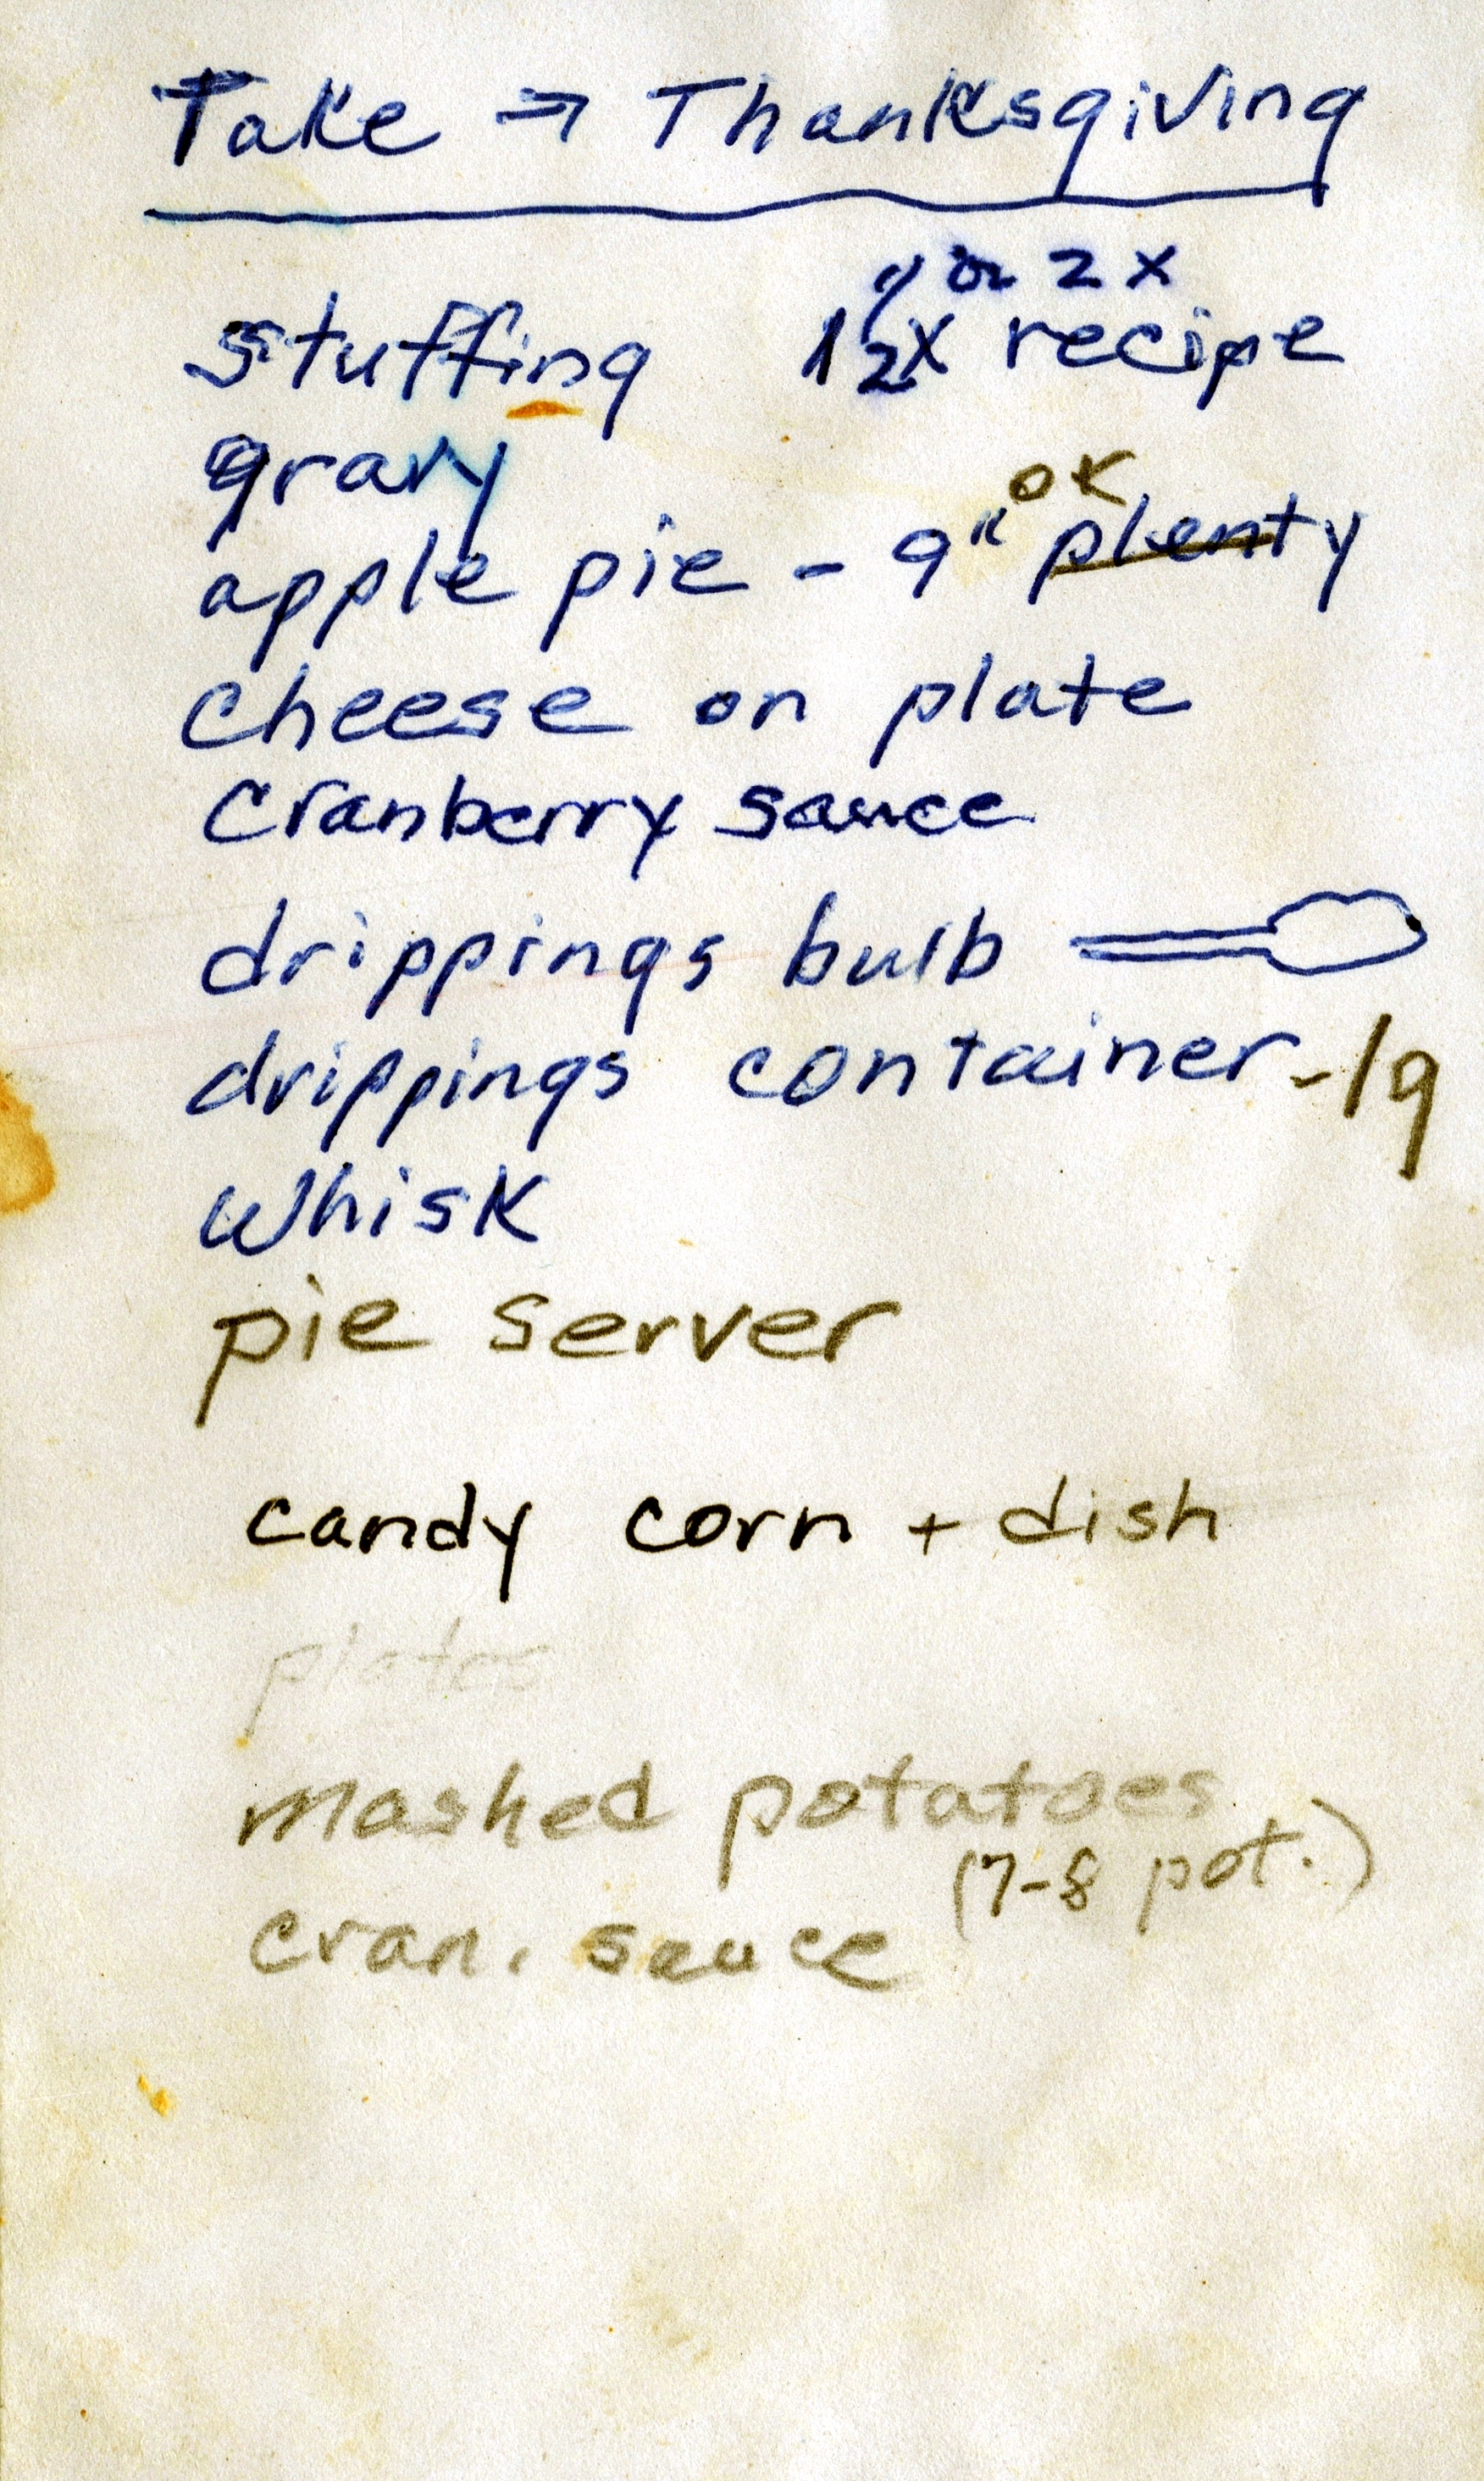 Take → Thanksgiving
or 2x
stuffing 1 1/2x recipe
gravy
ok
apple pie - 9" plenty
cheese on plate
cranberry sauce
drippings bulb
drippings container - lg
whisk
pie server
candy corn + dish
plates
mashed potatoes
(7-8 pot.)
cran. sauce